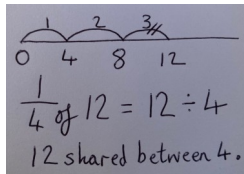 1 2 3
0 4 8 12
1/4 of 12 = 12 ÷ 4
12 shared between 4.